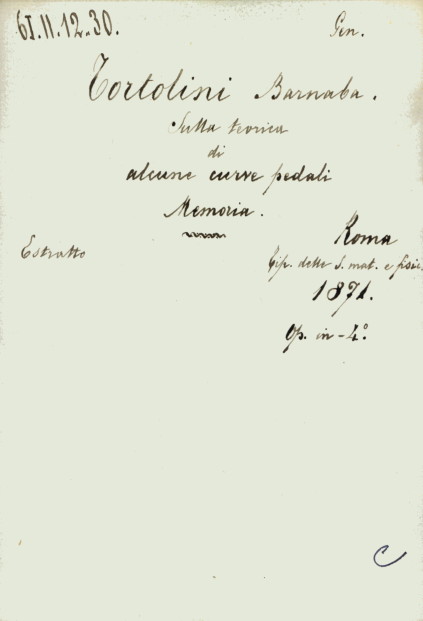 61.11.12.30.
Gen.
Tortolini Barnaba.
Sulla teorica
di
alcune curve pedali
Memoria.
Estratto
Roma
Tip. delle S. mat. e fisic
1871.
Op. in-4º.
C